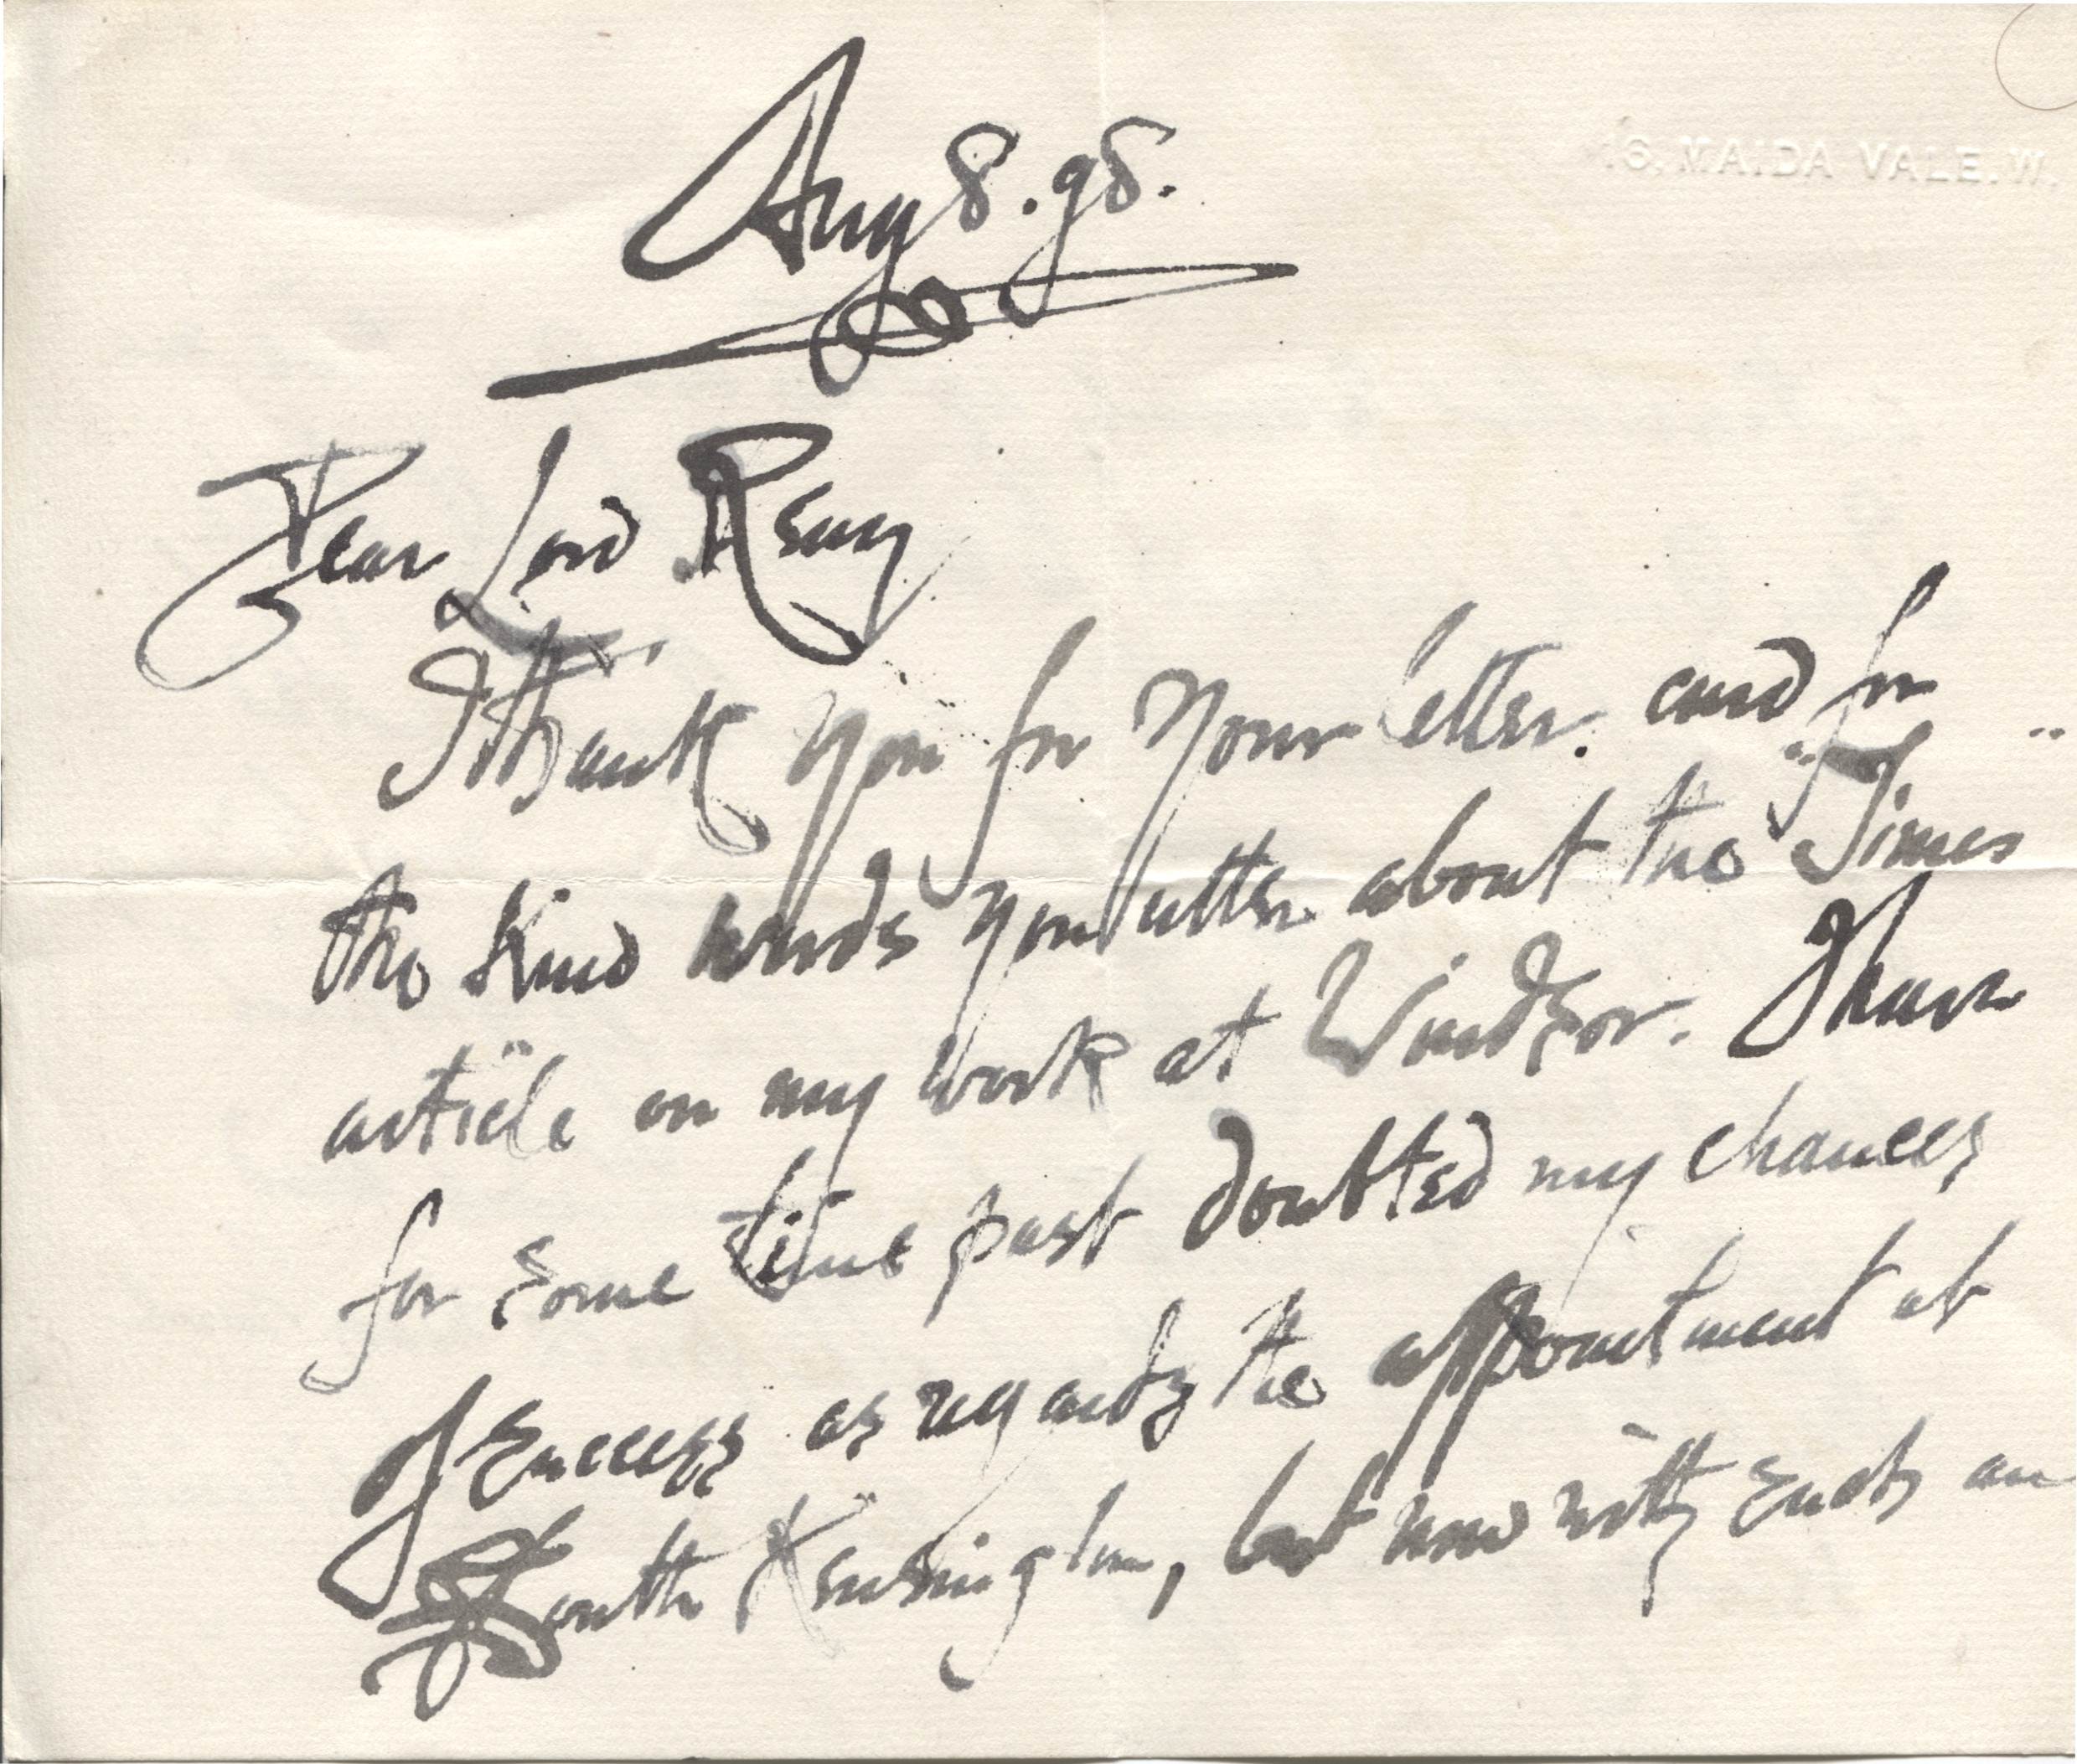 16, MAIDA VALE. W.
Aug 8. 98.
Dear Lord Reay
I thank you for your letter. and for
the kind words you utter about the "Times"
article on my work at Windsor. I have
for some time past doubted my chances
of success as regards the appointment at
South Kensington, but now with such an